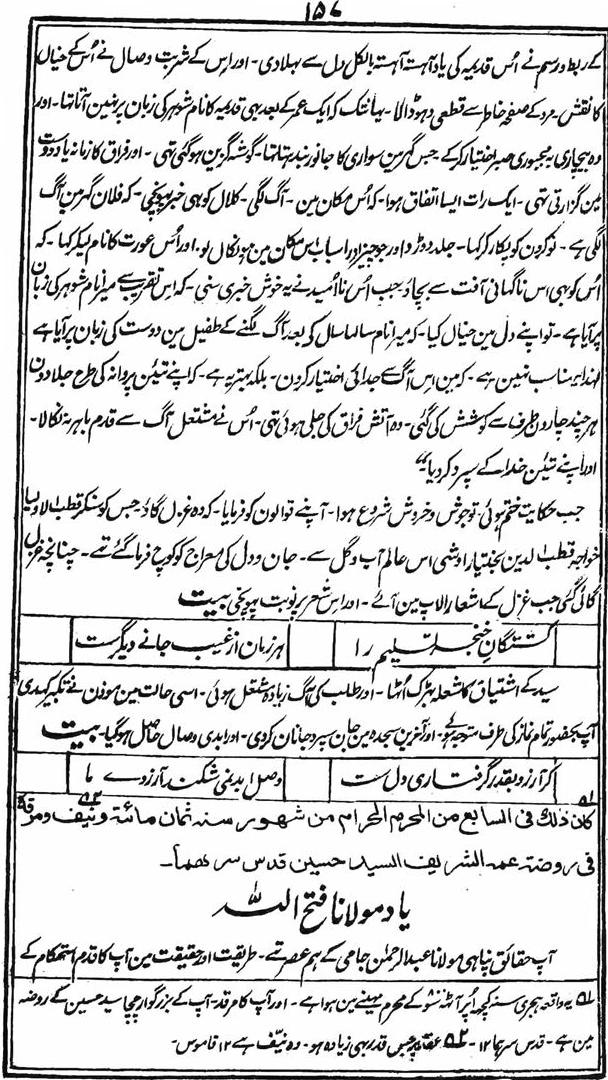 ۱۵۷
کے ربط و رسم نے اُس قدیمہ کی یاد آہستہ آہستہ بالکل دل سے بھلا دی - اور اس کے شربت وصال نے اُسکے خیال
کا نقش - مرد کے صفحۂ خاطر سے قطعی دہو ڈالا - یہانتک کہ ایک عمر کے بعد بہی قدیمہ کا نام شوہر کی زبان پر نہین آتا تہا - اور
وہ بیچاری بمجبوری صبر اختیار کر کے جس گہر مین سواری کا جانور بندہتا تہا - گوشہ گزین ہو گئی تہی - اور فراق کا زمانہ یاد دوست
مین گزارتی تہی - ایک رات ایسا اتفاق ہوا - کہ اُس مکان مین - آگ لگی - کلال کو بہی خبر پہونچی - کہ فلان گہر مین آگ
لگی ہے - نوکرون کو پکار کر کہا - جلد دوڑو اور جو چیز اور اسباب اس مکان مین ہو نکال لو - اور اُس عورت کا نام لیکر کہا - کہ
اُس کو بہی اس ناگہانی آفت سے بچاؤ - جب اُس ناامید نے یہ خوش خبری سنی - کہ اس تقریب سے میرا نام شوہر کی زبان
پر آیا ہے - تو اپنے دل مین خیال کیا - کہ میرا نام سالہا سال کی بعد آگ لگنے کے طفیل مین دوست کی زبان پر آیا ہے
لہذا یہ مناسب نہین ہے - کہ مین اس آگ سے جدائی اختیار کرون - بلکہ بہتر یہ ہے - کہ اپنے تئین پروانہ کی طرح جلا دون
ہر چند چارون طرف سے کوشش کی گئی - وہ آتش فراق کی جلی ہوئی تہی - اُس نے مشتعل آگ سے قدم باہر نہ نکالا -
اور اپنے تئین خدا کے سپرد کر دیا"
جب حکایت ختم ہوئی - تو جوش و خروش شروع ہوا - آپنے قوالون کو فرمایا - کہ وہ غزل گاؤ - جس کو سنکر قطب الاولیا
خواجہ قطب الدین بختیار اوشی اس عالم آب و گل سے - جان و دل کی معراج کو کوچ فرما گئے تہے - چنانچہ غزل
گائی گئی جب غزل کے اشعار الاپ مین آئے - اور اس شعر پر نوبت پہونچی بیت
کشتگانِ خنجر تسلیم را ہر زمان از غیب جانے دیگرست
سید کے اشتیاق کا شعلہ بہڑک اُٹہا - اور طلب کی آگ زیادہ مشتعل ہوئی - اسی حالت مین موذن نے تکبیر کہدی
آپ بحضور تمام نماز کی طرف متوجہ ہوے - اور آخرین سجدہ مین جان سپرد جانان کر دی - اور ابدی وصال حاصل ہو گیا - بیت
اگر آرزو بقدر گرفتاری دل ست وصل ابد نمی شکند آرزوے ما
کان ذلك فی السابع من المحرم الحرام من شهور سنه ثمان مائة و نیف و مرقدہ
فی روضة عمه الشریف السید حسین قدس سرهما -
یاد مولانا فتح اللہ
آپ حقائق پناہی مولانا عبد الرحمٰن جامی کے ہم عصر تہے - طریقت اور حقیقت مین آپ کا قدم استحکام کے
۱ یہ واقعہ ہجری سنہ کچہ اُپر آٹہہ سو کے محرم مہینے مین ہوا ہے - اور آپ کا مرقد - آپ کے بزرگوار چچا سید حسین کے روضہ
مین ہے - قدس سرہما ۱۲ - ۲ عقد پر جس قدر بہی زیادہ ہو - وہ نیّف ہے ۱۲ قاموس -